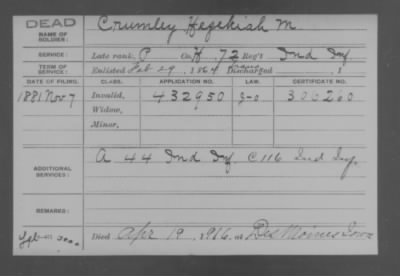 DEAD
NAME OF SOLDIER: Crumley Hezekiah M.
SERVICE: Late rank, P Co. K, 72 Reg't Ind Inf.
TERM OF SERVICE: Enlisted Feb 29, 1864 Discharged , 1
DATE OF FILING. CLASS. APPLICATION NO. LAW. CERTIFICATE NO.
1881 Nov 7 Invalid, 432950 300260
Widow,
Minor,
ADDITIONAL SERVICES: A 44 Ind Inf C 116 Ind Inf.
REMARKS:
Died Apr 19, 1916, at Des Moines Iowa